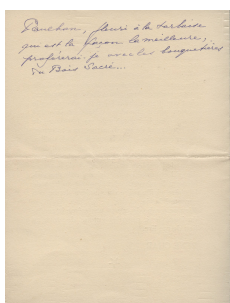 Ponchon, fleuri à la tarbaise
qui est la façon la meilleure,
préférerai-je avec les bouquetières
du Bois Sacré...